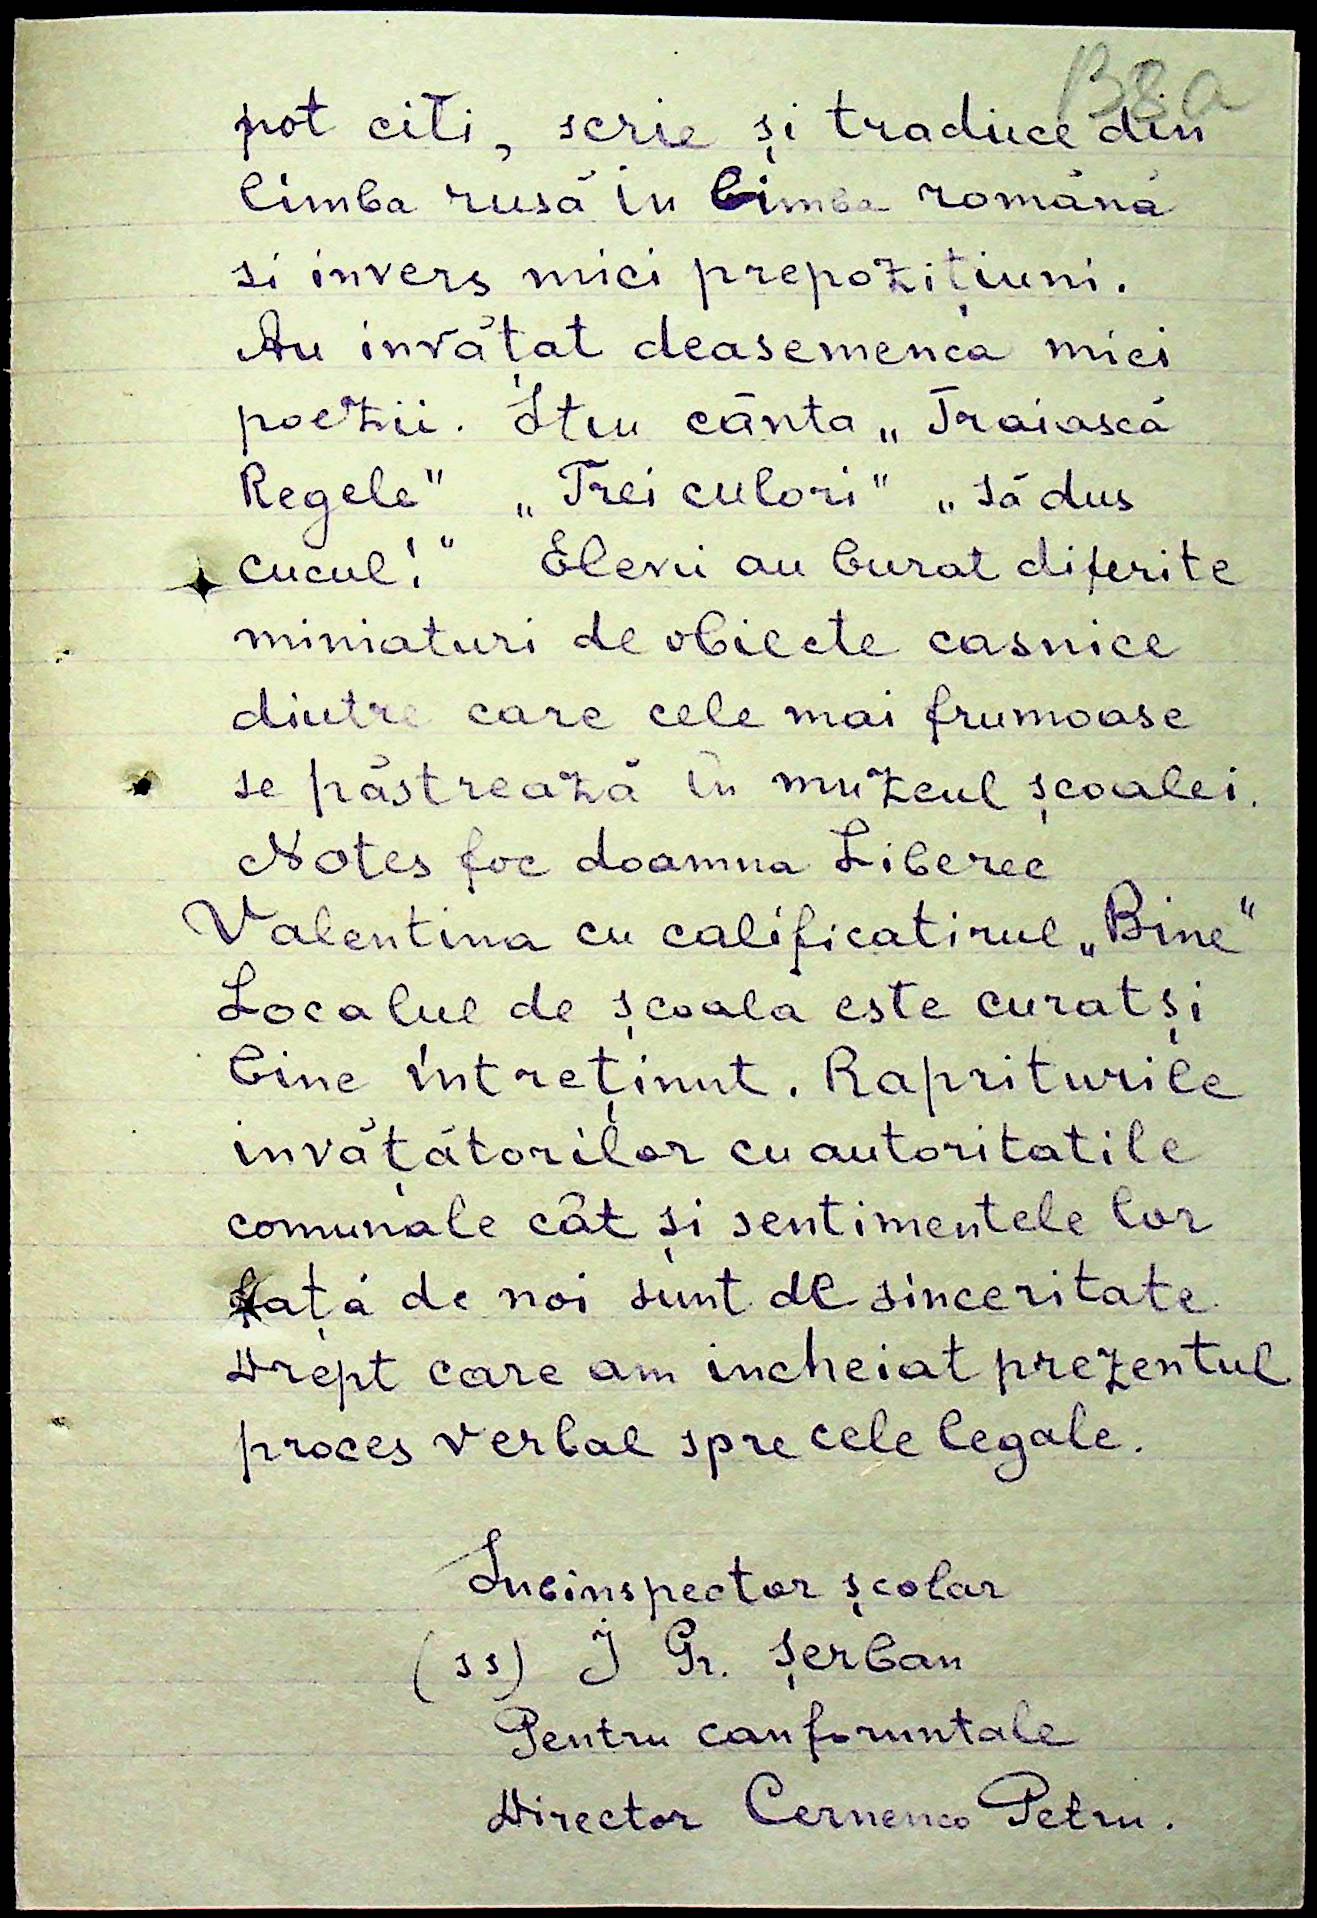 B8a
pot citi, scrie și traduce din
limba rusă in limba română
si invers mici prepozițiuni.
Au invățat deasemenea mici
poezii. Stiu cânta „Traiască
Regele" „Trei culori" „să dus
cucul!" Elevii au lucrat diferite
miniaturi de obiecte casnice
dintre care cele mai frumoase
se păstrează in muzeul școalei.
Notes foc doamna Liberec
Valentina cu calificativul „Bine"
Localul de școala este curat și
bine intreținut. Raporiturile
invățătorilor cu autoritatile
comunale cât și sentimentele lor
față de noi sunt de sinceritate.
Drept care am incheiat prezentul
proces verbal spre cele legale.
Subinspector școlar
(ss) J Gr. Șerban
Pentru conformtale
Director Cernenco Petru.